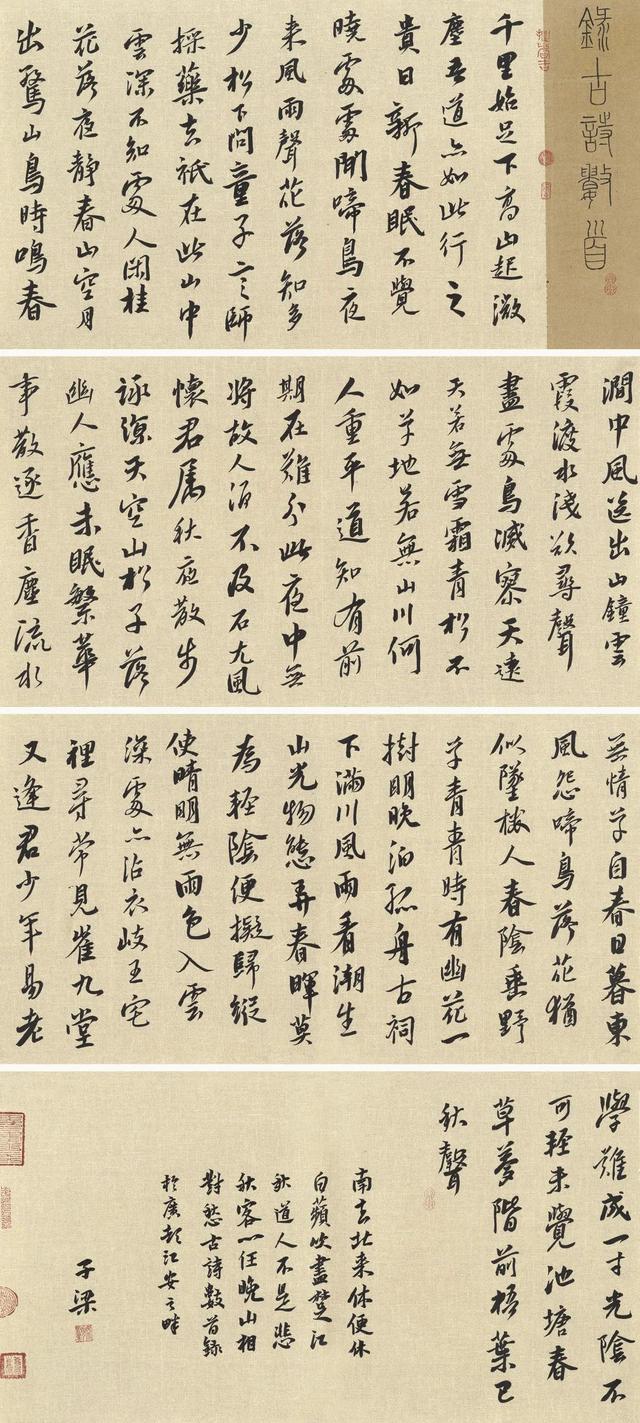 錄古詩數首
千里始足下高山起微
塵吾道亦如此行之
貴日新春眠不覺
曉處處聞啼鳥夜
来風雨聲花落知多
少松下問童子言師
採藥去祇在此山中
雲深不知處人閑桂
花落夜静春山空月
出驚山鳥時鳴春
澗中風送出山鐘雲
霞渡水淺欲尋聲
盡處鳥滅寥天遠
天若無雪霜青松不
如草地若無山川何
人重平道知有前
期在難分此夜中無
将故人酒不及石尤風
懷君属秋夜散步
詠凉天空山松子落
幽人應未眠繁華
事散逐香塵流水
無情草自春日暮東
風怨啼鳥落花猶
似墜楼人春陰垂野
草青青時有幽花一
樹明晚泊孤舟古祠
下滿川風雨看潮生
山光物態弄春暉莫
為輕陰便擬歸縱
使晴明無雨色入雲
深處亦沾衣岐王宅
裡尋常見崔九堂
又逢君少年易老
學難成一寸光陰不
可輕未覺池塘春
草夢階前梧葉已
秋聲
南去北来休便休
白蘋吹盡楚江
秋道人不是悲
秋客一任晚山相
對愁古詩數首錄
於廣彭江安之畔
子梁